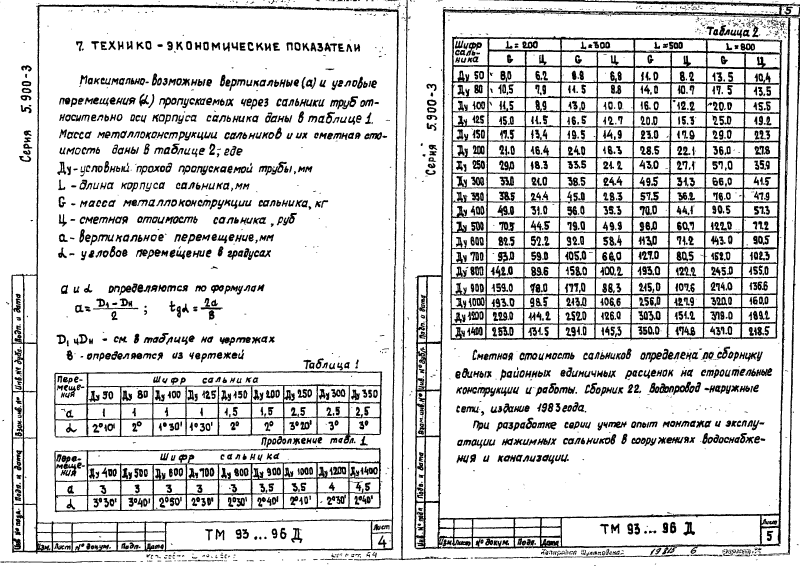 7. ТЕХНИКО-ЭКОНОМИЧЕСКИЕ ПОКАЗАТЕЛИ
Максимально-возможные вертикальные (а) и угловые
перемещения (α) пропускаемых через сальники труб от-
носительно оси корпуса сальника даны в таблице 1.
Масса металлоконструкции сальников и их сметная сто-
имость даны в таблице 2, где
Ду - условный проход пропускаемой трубы, мм
L - длина корпуса сальника, мм
G - масса металлоконструкции сальника, кг
Ц - сметная стоимость сальника, руб
а - вертикальное перемещение, мм
α - угловое перемещение в градусах
а и α определяются по формулам
a = D1 - Dн / 2 ; tgα = 2a / в
D1 и Dн - см. в таблице на чертежах
в - определяется из чертежей
Таблица 1
Пере-меще-ния Шифр сальника
Ду 50 Ду 80 Ду 100 Ду 125 Ду 150 Ду 200 Ду 250 Ду 300 Ду 350
а 1 1 1 1 1,5 1,5 2,5 2,5 2,5
α 2°10' 2° 1°30' 1°30' 2° 2° 3°20' 3° 3°
Продолжение табл. 1
Пере-меще-ния Шифр сальника
Ду 400 Ду 500 Ду 600 Ду 700 Ду 800 Ду 900 Ду 1000 Ду 1200 Ду 1400
а 3 3 3 3 3 3,5 3,5 4 4,5
α 3°30' 3°40' 2°50' 2°30' 2°30' 2°40' 2°10' 2°30' 2°40'
ТМ 93...96 Д
Лист
4
Изм. Лист № докум. Подп. Дата
Серия 5.900-3
5
Таблица 2
Шифр саль-ника L=200 L=300 L=500 L=800
G Ц G Ц G Ц G Ц
Ду 50 8,0 6,2 8.8 6,8 11.0 8.2 13.5 10,4
Ду 80 10,5 7,9 11.5 8.8 14.0 10.7 17.5 13.5
Ду 100 11,5 8,9 13.0 10.0 16.0 12.2 20.0 15.5
Ду 125 15.0 11.5 16.5 12.7 20.0 15.3 25.0 19.2
Ду 150 17.5 13.4 19.5 14.9 23.0 17.9 29.0 22.3
Ду 200 21.0 16.4 24.0 18.3 28.5 22.1 36.0 27.8
Ду 250 29.0 18.3 33.5 21.2 43.0 27.1 57.0 35.9
Ду 300 33.0 21.0 38.5 24.4 49.5 31.3 66,0 41.5
Ду 350 38.5 24.4 45.0 28.3 57.5 36.2 76.0 47.9
Ду 400 49.0 31.0 56.0 35.3 70.0 44.1 90.5 57.3
Ду 500 70.5 44.5 79.0 49.9 96.0 60.7 122.0 77.2
Ду 600 82.5 52.2 92.0 58.4 113.0 71.2 143.0 90.5
Ду 700 93.0 59.0 105.0 66.0 127.0 80.5 162.0 102.3
Ду 800 142.0 89.6 158.0 100.2 193.0 122.2 245.0 155.0
Ду 900 159.0 78.0 177.0 88.3 215,0 107.6 274.0 136.6
Ду 1000 193.0 98.5 213.0 106,6 256.0 127.9 320.0 160.0
Ду 1200 229.0 114.2 252.0 126.0 303.0 151.2 379.0 189.2
Ду 1400 263.0 131.5 291.0 145,3 350.0 174.8 437.0 218.5
Сметная стоимость сальников определена по сборнику
единых районных единичных расценок на строительные
конструкции и работы. Сборник 22. Водопровод - наружные
сети, издание 1983 года.
При разработке серии учтен опыт монтажа и эксплу-
атации нажимных сальников в сооружениях водоснабже-
ния и канализации.
ТМ 93...96 Д
Лист
5
Изм. Лист № докум. Подп. Дата
Серия 5.900-3